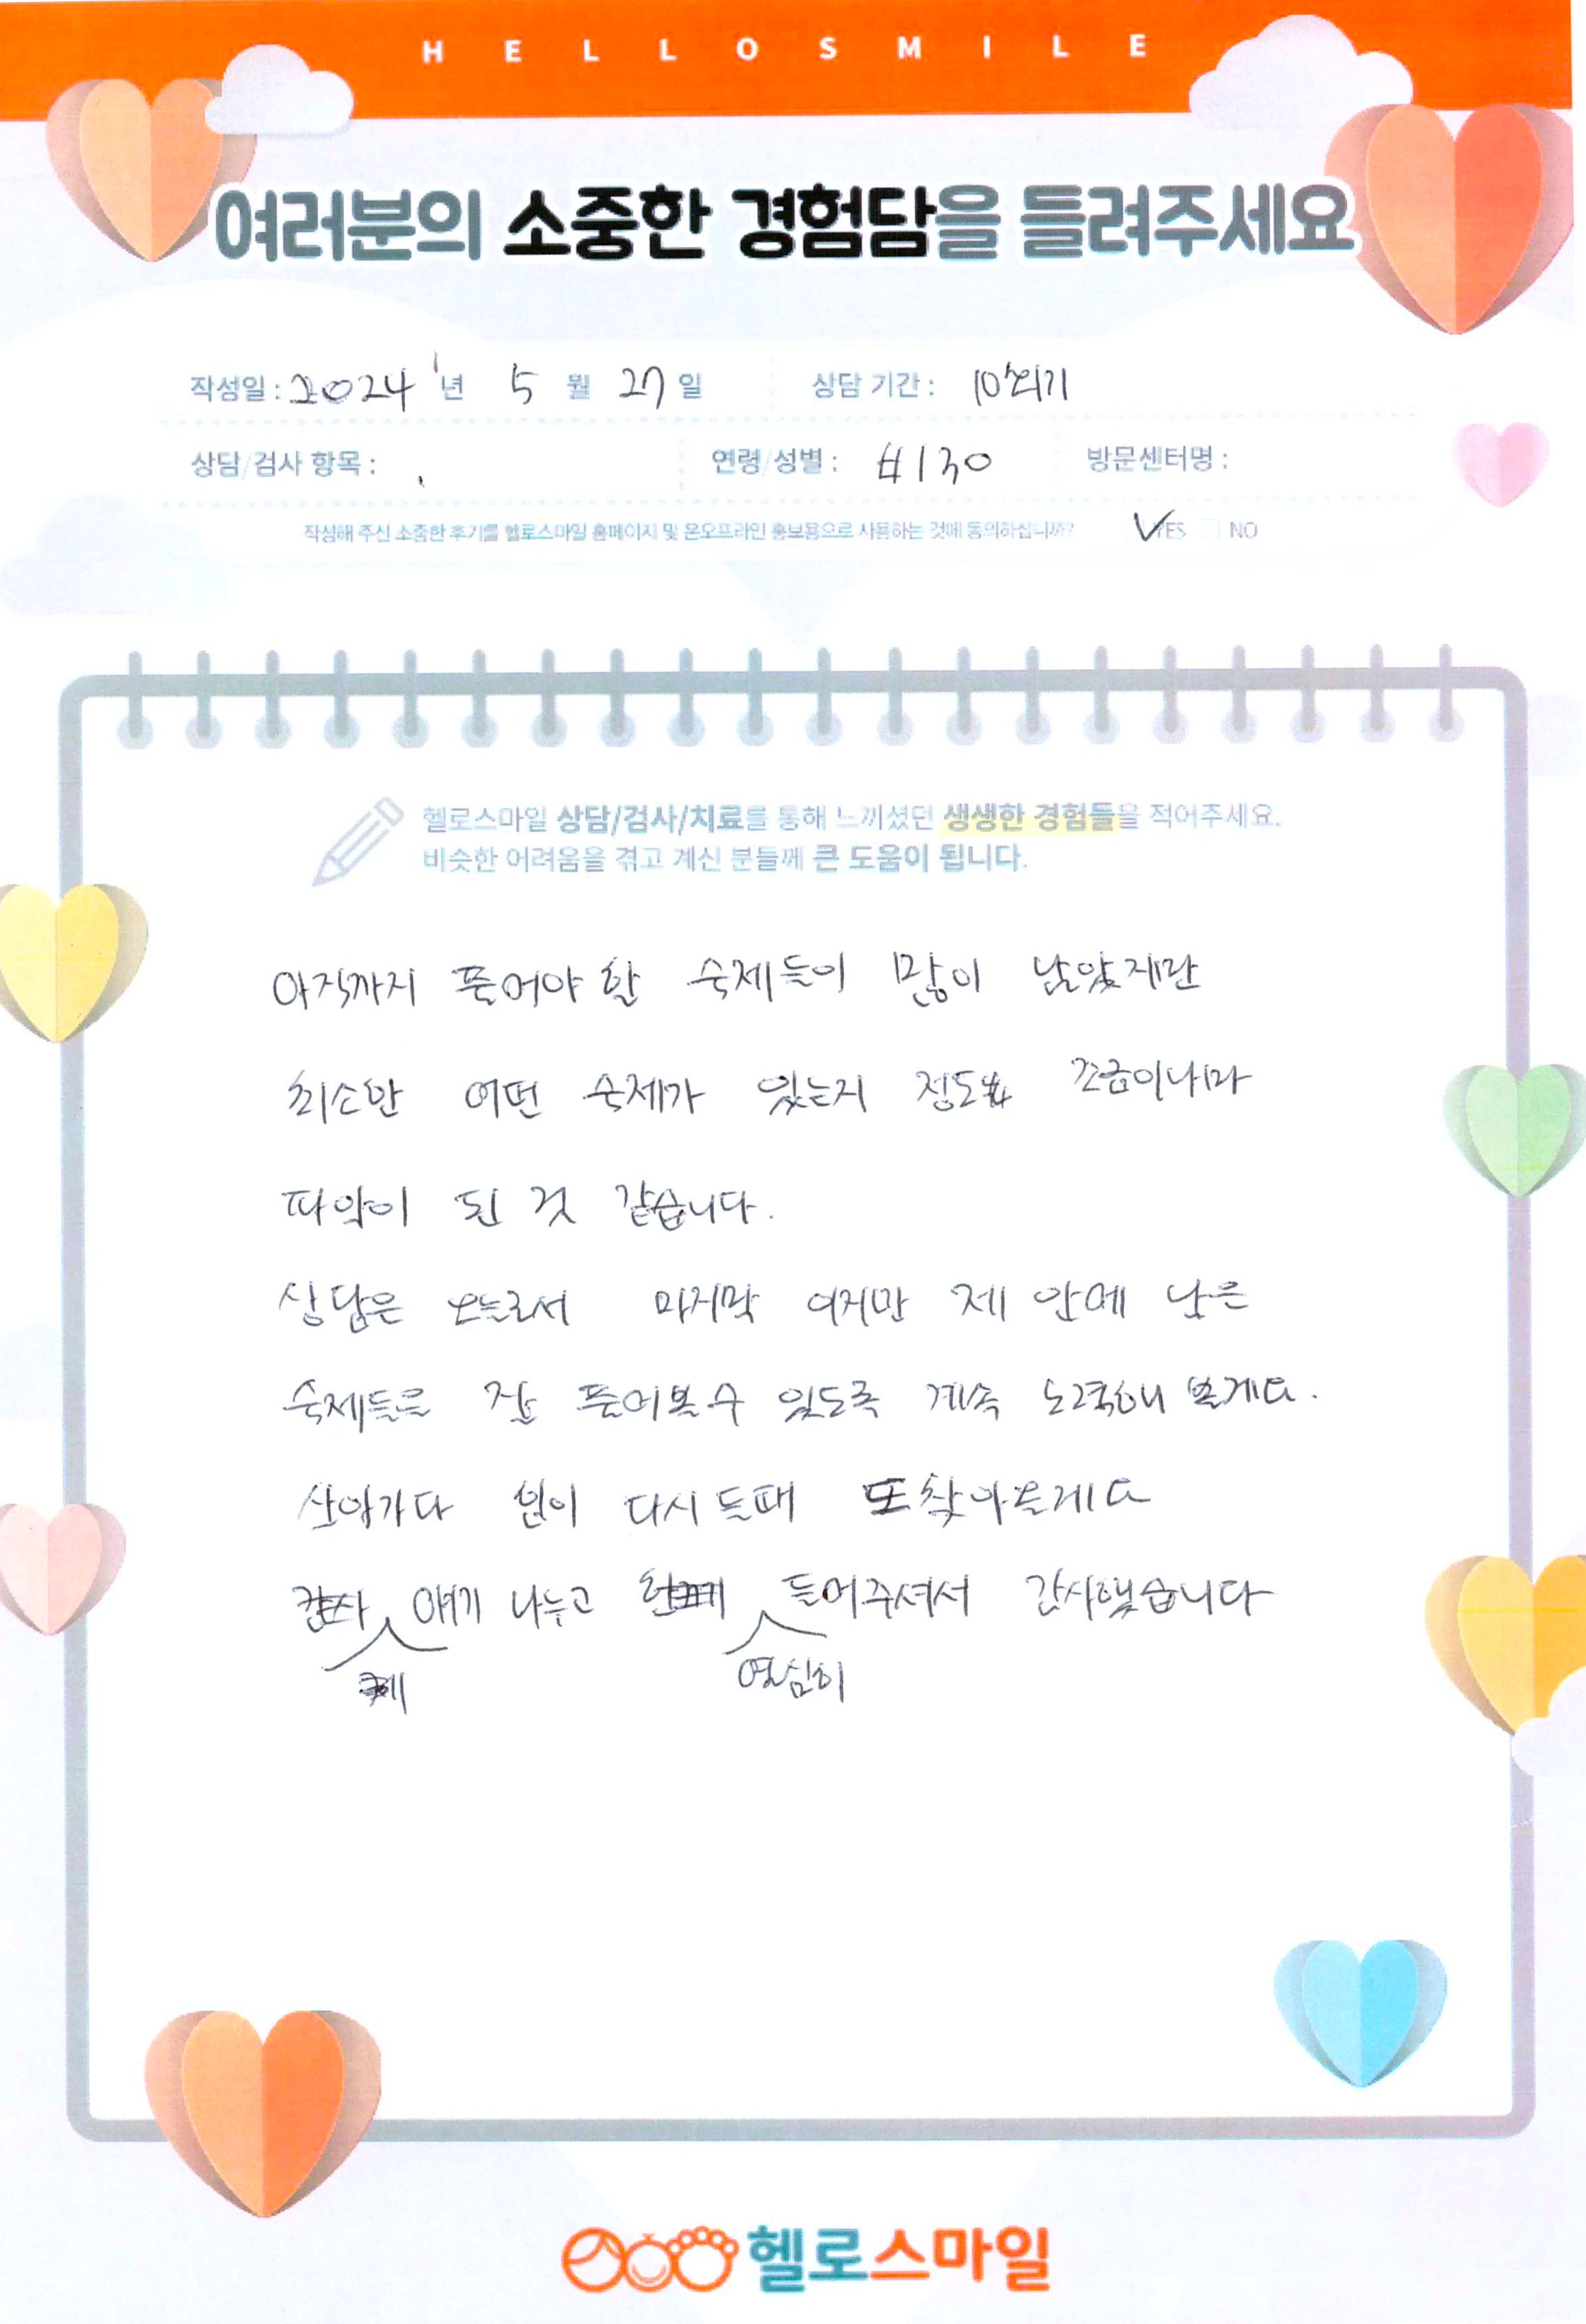 HELLOSMILE
여러분의 소중한 경험담을 들려주세요
작성일 : 2024 년 5 월 27 일 상담 기간 : 10회기
상담/검사 항목 : 연령/성별 : 방문센터명 :
작성해 주신 소중한 후기를 헬로스마일 홈페이지 및 온오프라인 홍보용으로 사용하는 것에 동의하십니까? YES NO
헬로스마일 상담/검사/치료를 통해 느끼셨던 생생한 경험들을 적어주세요.
비슷한 어려움을 겪고 계신 분들께 큰 도움이 됩니다.
아직까지 풀어야 할 숙제들이 많이 남았지만
최소한 어떤 숙제가 있는지 정도는 조금이나마
파악이 된 것 같습니다.
상담은 오늘로서 마지막 이지만 제 안에 남은
숙제들을 잘 풀어볼 수 있도록 계속 노력해 볼게요.
살아가다 힘이 다시 들때 또 찾아올게요
제 얘기 나누고 열심히 들어주셔서 감사했습니다
헬로스마일